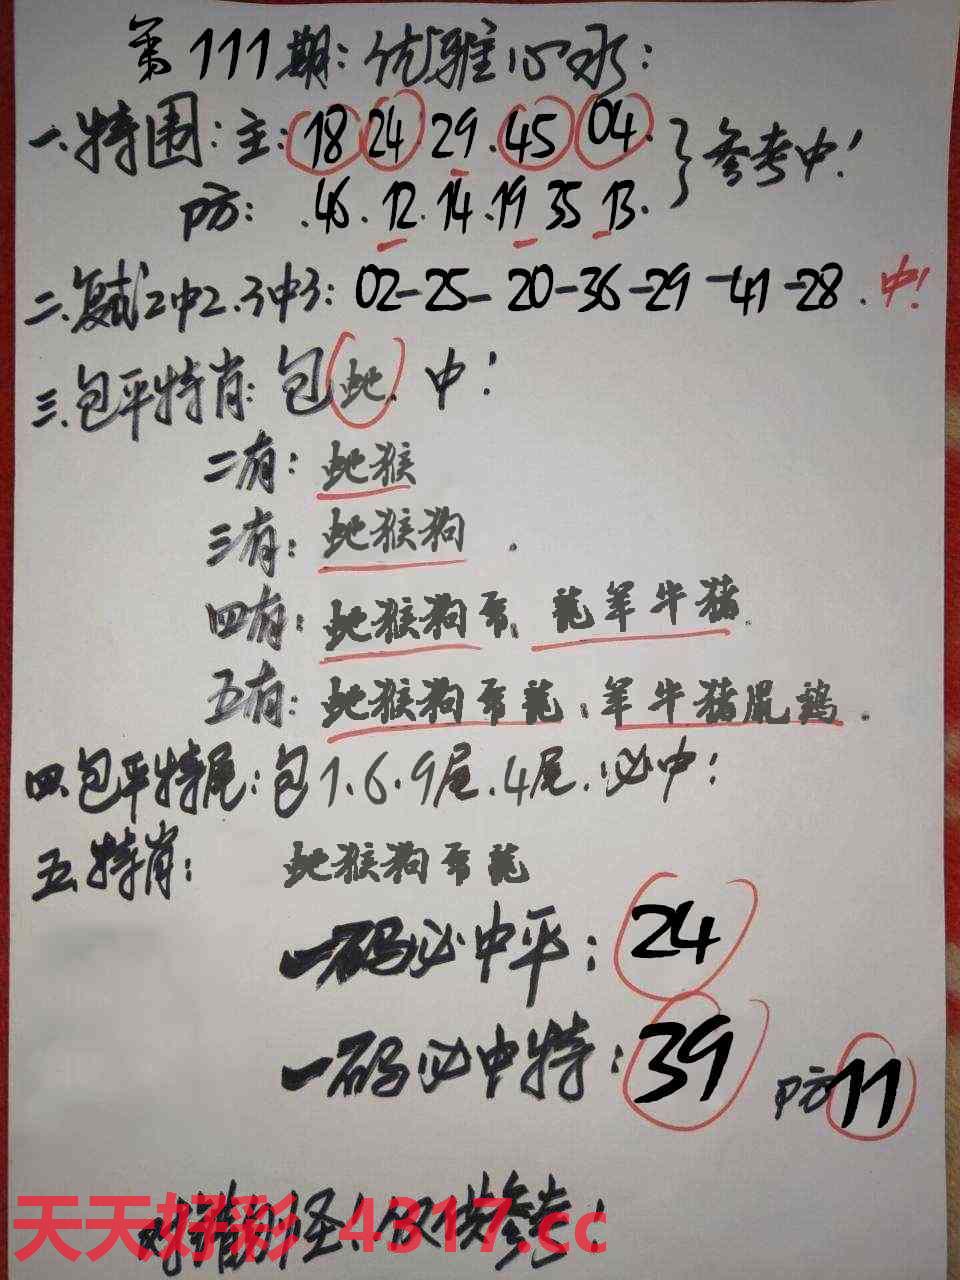 第111期:优雅心水:
一.特围:主:18 24.29.45 04.
防:.46.12.14.19 35 13. }参考中!
二.复试2中2.3中3:02-25-20-36-29-41-28.中!
三.包平特肖:包蛇.中!
二有:蛇猴
三有:蛇猴狗.
四有:蛇猴狗虎、龍羊牛猪.
五有:蛇猴狗虎龍:羊牛猪鼠鷄.
四.包平特尾:包1.6.9尾.4尾.必中!
五.特肖:蛇猴狗虎龍
一码必中平:24
一码必中特:39 防11
对错勿怪!仅供参考!
天天好彩 4317.cc